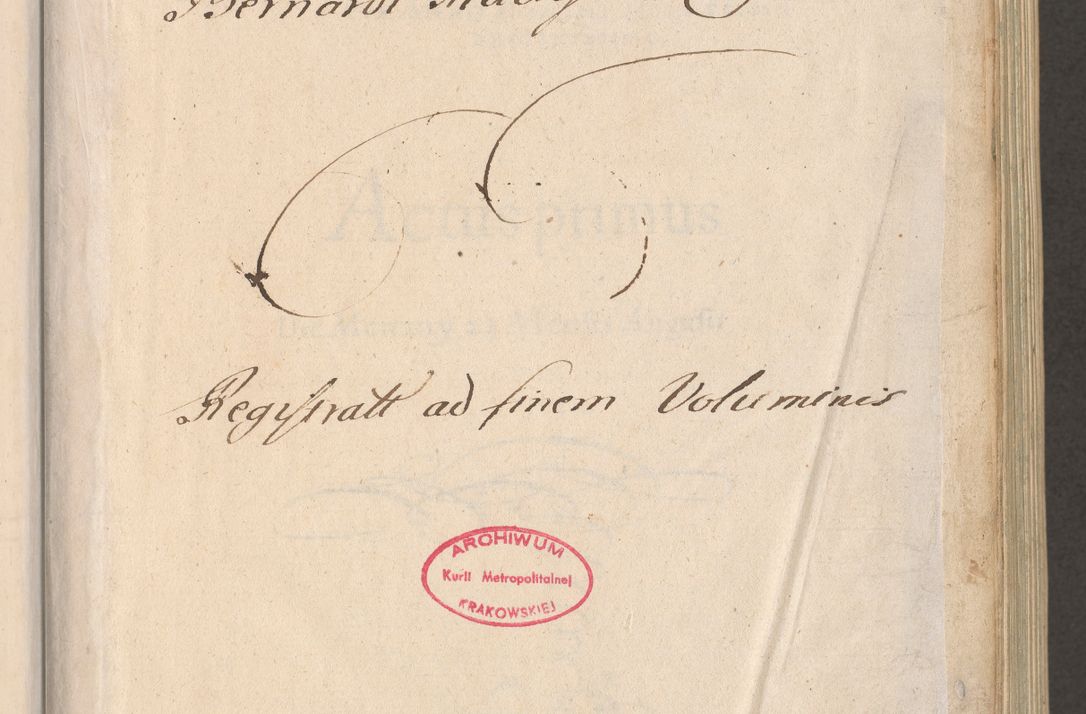 Bernardi
Actus primus
Die Mercurii 22 Mensis Augusti
Registratt ad finem Voluminis
ARCHIWUM
Kurii Metropolitalnej
KRAKOWSKIEJ